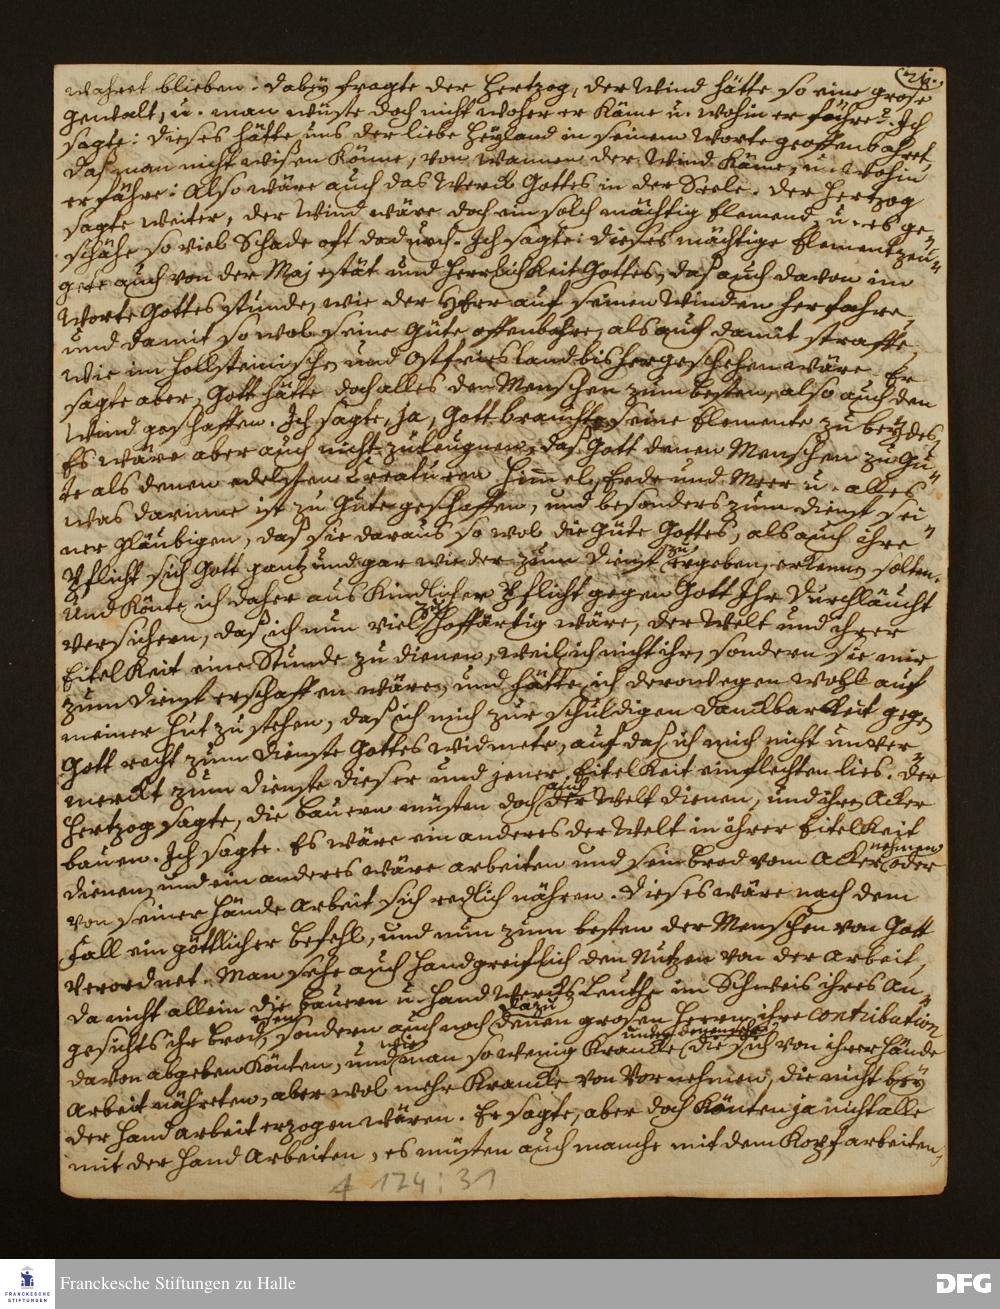 (21.
wahret blieben: Dabey fragte der Hertzog, der Wind hätte so eine grose
gewalt, u. man wüste doch nicht woher er käme u. wohin er führe? Ich
sagte: dieses hätte uns der liebe Heyland in seinem Worte geoffenbahret,
daß man nicht wißen könne, von wannen der Wind käme, u. wohin
er fähre: Also wäre auch das Werck Gottes in der Seele. Der Hertzog
sagte weiter, der Wind wäre doch ein solch mächtig Element, u. es ge-
schähe so viel Schade oft dadurch. Ich sagte: dieses mächtige Element zeu-
gete auch von der Majestät und Herrlichkeit Gottes, daß auch davon im
Worte Gottes stünde, wie der HErr auf seinen Winden herfahre,
und damit so wol seine Güte offenbahre, als auch damit straffe,
wie im Hollsteinischen und Ostfriesland bisher geschehen wäre. Er
sagte aber, Gott hätte doch alles den Menschen zum besten, also auch den
Wind geschaffen. Ich sagte, ja, Gott brauchte seine Elemente zu beydes,
Es wäre aber auch nicht zuleugnen, daß Gott denen Menschen zu Gu-
te als denen edelsten Creaturen Himmel, Erde und Meer u. alles
was darinne ist zu Gute geschaffen, und besonders zum Dienst sei-
ner Gläubigen, daß sie daraus so wol die Güte Gottes, als auch ihre
Pflicht sich Gott gantz und gar wieder zum Dienst zu ergeben, erkennen solten.
Und könte ich daher aus Kindlicher Pflicht gegen Gott Ihr Durchläucht
versichern, daß ich nun viel zu hoffärtig wäre, der Welt und ihrer
Eitelkeit eine Stunde zu dienen, weil ich nicht ihr, sondern sie mir
zum Dienst erschaffen wären, und hätte ich derowegen wohl auf
meiner Hut zu stehen, daß ich mich zur schuldigen Danckbarkeit gegen
Gott recht zum Dienste Gottes widmete, auf daß ich mich nicht unver
merckt zum Dienste dieser und jener Eitelkeit einflechten lies. Der
Hertzog sagte, die Bauern müsten doch auch der Welt dienen, und ihren Acker
bauen. Ich sagte. Es wäre ein anderes der Welt in ihrer Eitelkeit
dienen, und ein anderes wäre arbeiten und sein brod vom Acker nehmen oder
von seiner Hände Arbeit sich redlich nähren. Dieses wäre nach dem
Fall ein göttlicher Befehl, und nun zum besten der Menschen von Gott
verordnet. Man sehe auch handgreiflich den Nutzen von der Arbeit,
da nicht allein die Bauern u. Handwercks Leuthe im Schweis ihres An-
gesichts ihr brod, sondern auch noch dazu denen grosen Herren ihre Contribution
davon abgeben könten, und wie man so wenig Krancke unter denen die sich von ihrer Hände
Arbeit nähreten, aber wol mehr Krancke von Vornehmen, die nicht bey
der Hand arbeit erzogen wären. Er sagte, aber doch könten ja nicht alle
mit der Hand Arbeiten, es müsten auch manche mit dem Kopf arbeiten,
4 174:31
FRANCKESCHE STIFTUNGEN
Franckesche Stiftungen zu Halle
DFG